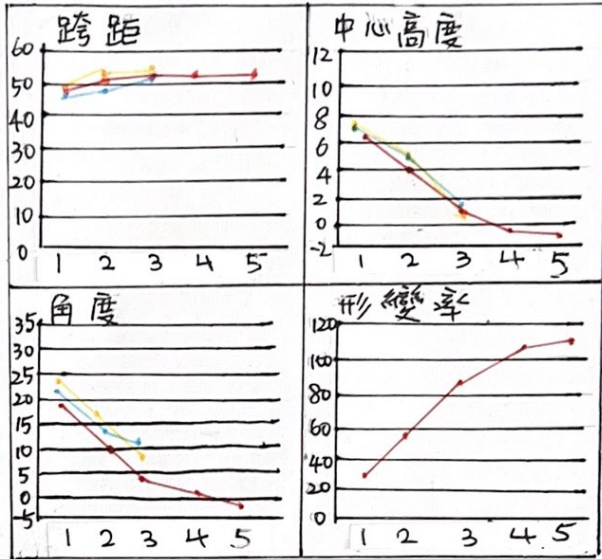 跨距
60
50
40
30
20
10
0
1 2 3 4 5
中心高度
12
10
8
6
4
2
0
-2
1 2 3 4 5
角度
35
30
25
20
15
10
5
0
-5
1 2 3 4 5
形變率
120
100
80
60
40
20
0
1 2 3 4 5